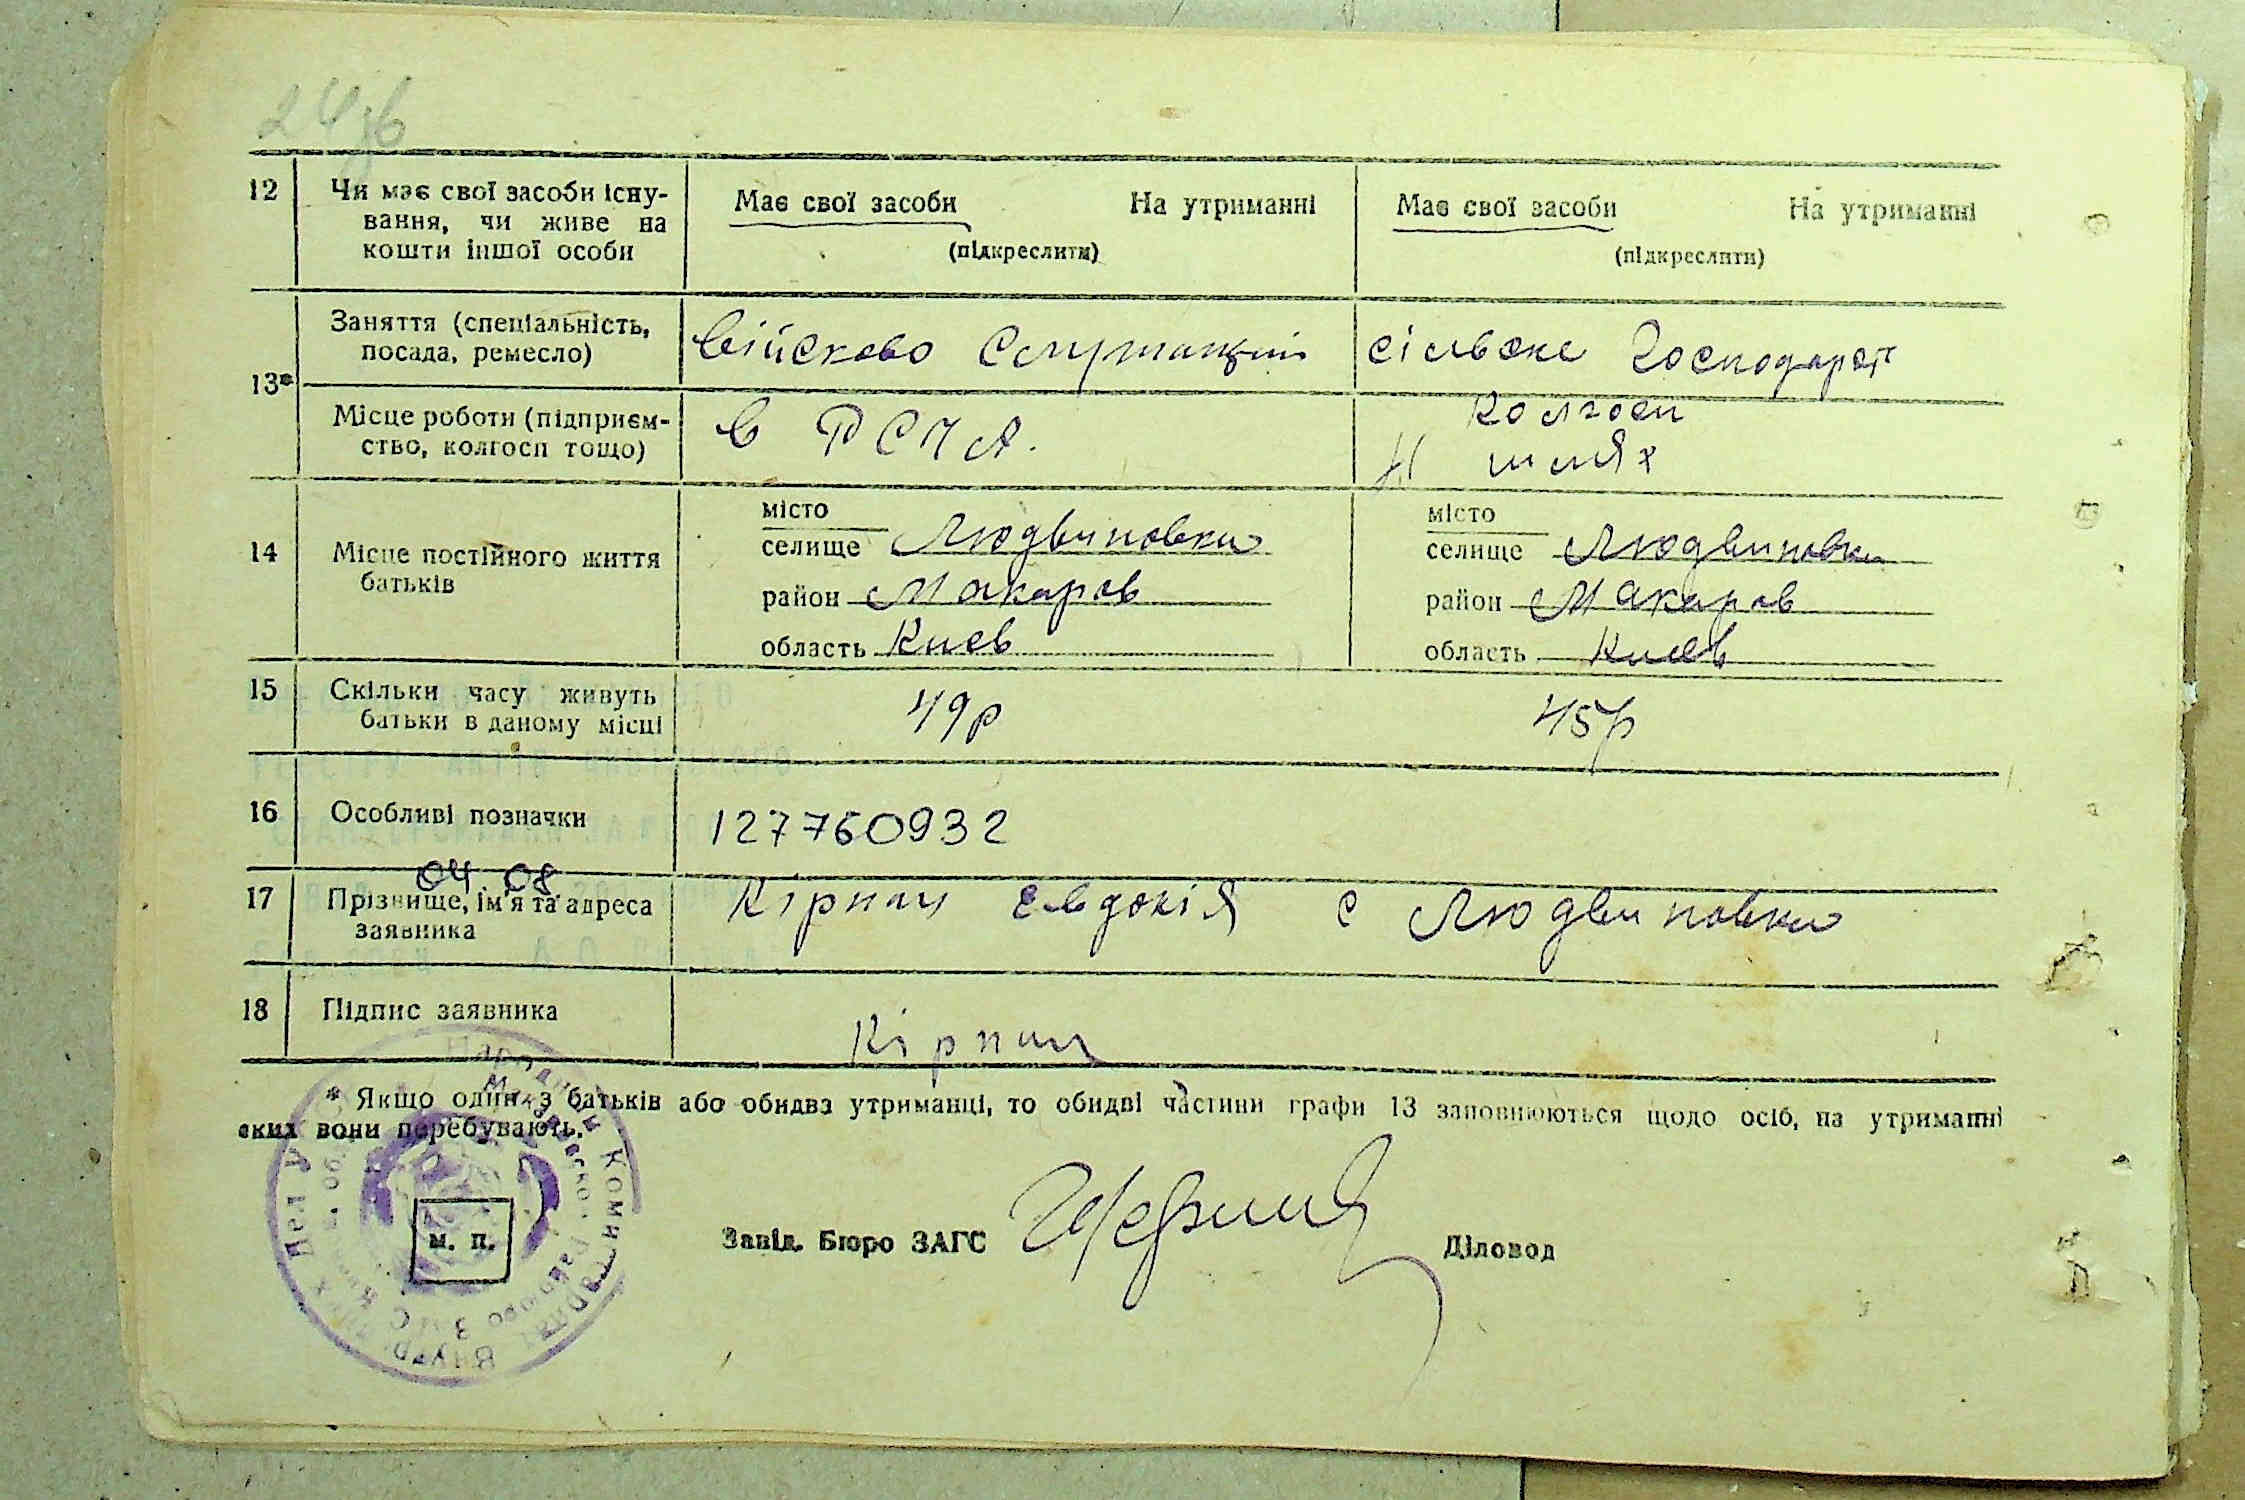 24зв
12 Чи має свої засоби існу- Має свої засоби На утриманні Має свої засоби На утриманні
вання, чи живе на
кошти іншої особи (підкреслити) (підкреслити)
13* Заняття (спеціальність, військово Служащий сільске Господарст
посада, ремесло)
Місце роботи (підприєм- в РСЧА. колгосп
ство, колгосп тощо) Н шлях
14 Місце постійного життя місто місто
батьків селище Людвиновка селище Людвиновка
район Макаров район Макаров
область Киев область Киев
15 Скільки часу живуть 49р 45р
батьки в даному місці
16 Особливі позначки 127760932
04 08
17 Прізвище, ім'я та адреса Кірпач Евдокія с Людвиновка
заявника
18 Підпис заявника Кірпач
* Якщо один з батьків або обидва утриманці, то обидві частини графи 13 заповнюються щодо осіб, на утриманні
яких вони перебувають.
м. п.
Завід. Бюро ЗАГС Діловод